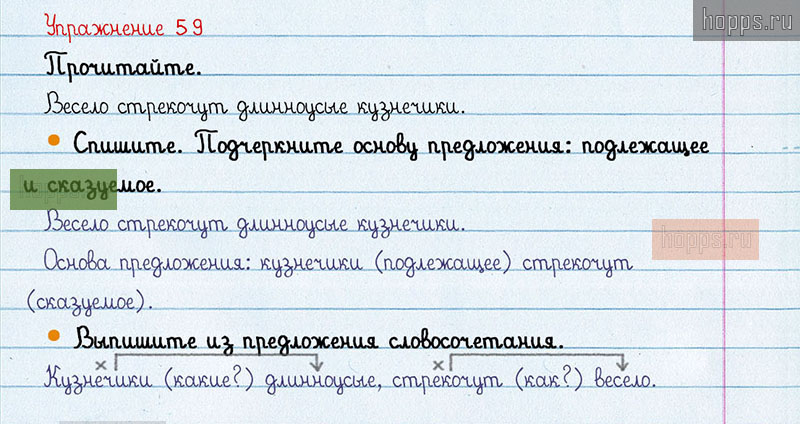 Упражнение 59
hopps.ru
Прочитайте.
Весело стрекочут длинноусые кузнечики.
• Спишите. Подчеркните основу предложения: подлежащее
и сказуемое.
Весело стрекочут длинноусые кузнечики.
hopps.ru
Основа предложения: кузнечики (подлежащее) стрекочут
(сказуемое).
• Выпишите из предложения словосочетания.
× ×
Кузнечики (какие?) длинноусые, стрекочут (как?) весело.